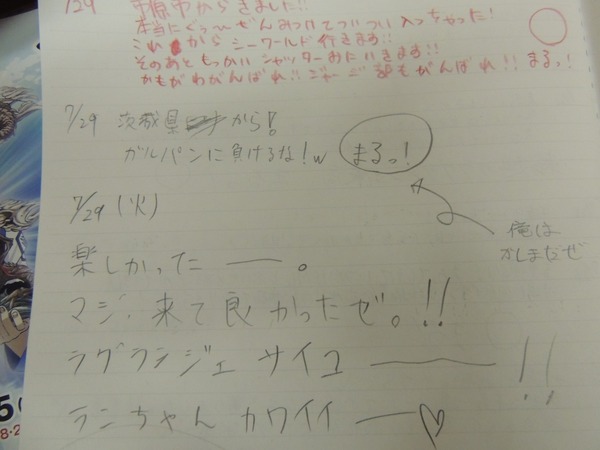 7/29 市原市からきました!!
本当にぐう〜ぜんみつけてついつい入っちゃった!
これからシーワールド行きます!!
そのあともっかいシャッターおしにいきます!!
かもがわがんばれ!! ジャージ部もがんばれ!! まるっ!
7/29 茨城県から!
ガルパンに負けるな!w まるっ!
俺は
かしまだぜ
7/29 (火)
楽しかったー。
マジ、来て良かったぜ。!!
ラグランジェ サイコー!!
ランちゃん カワイイー♡